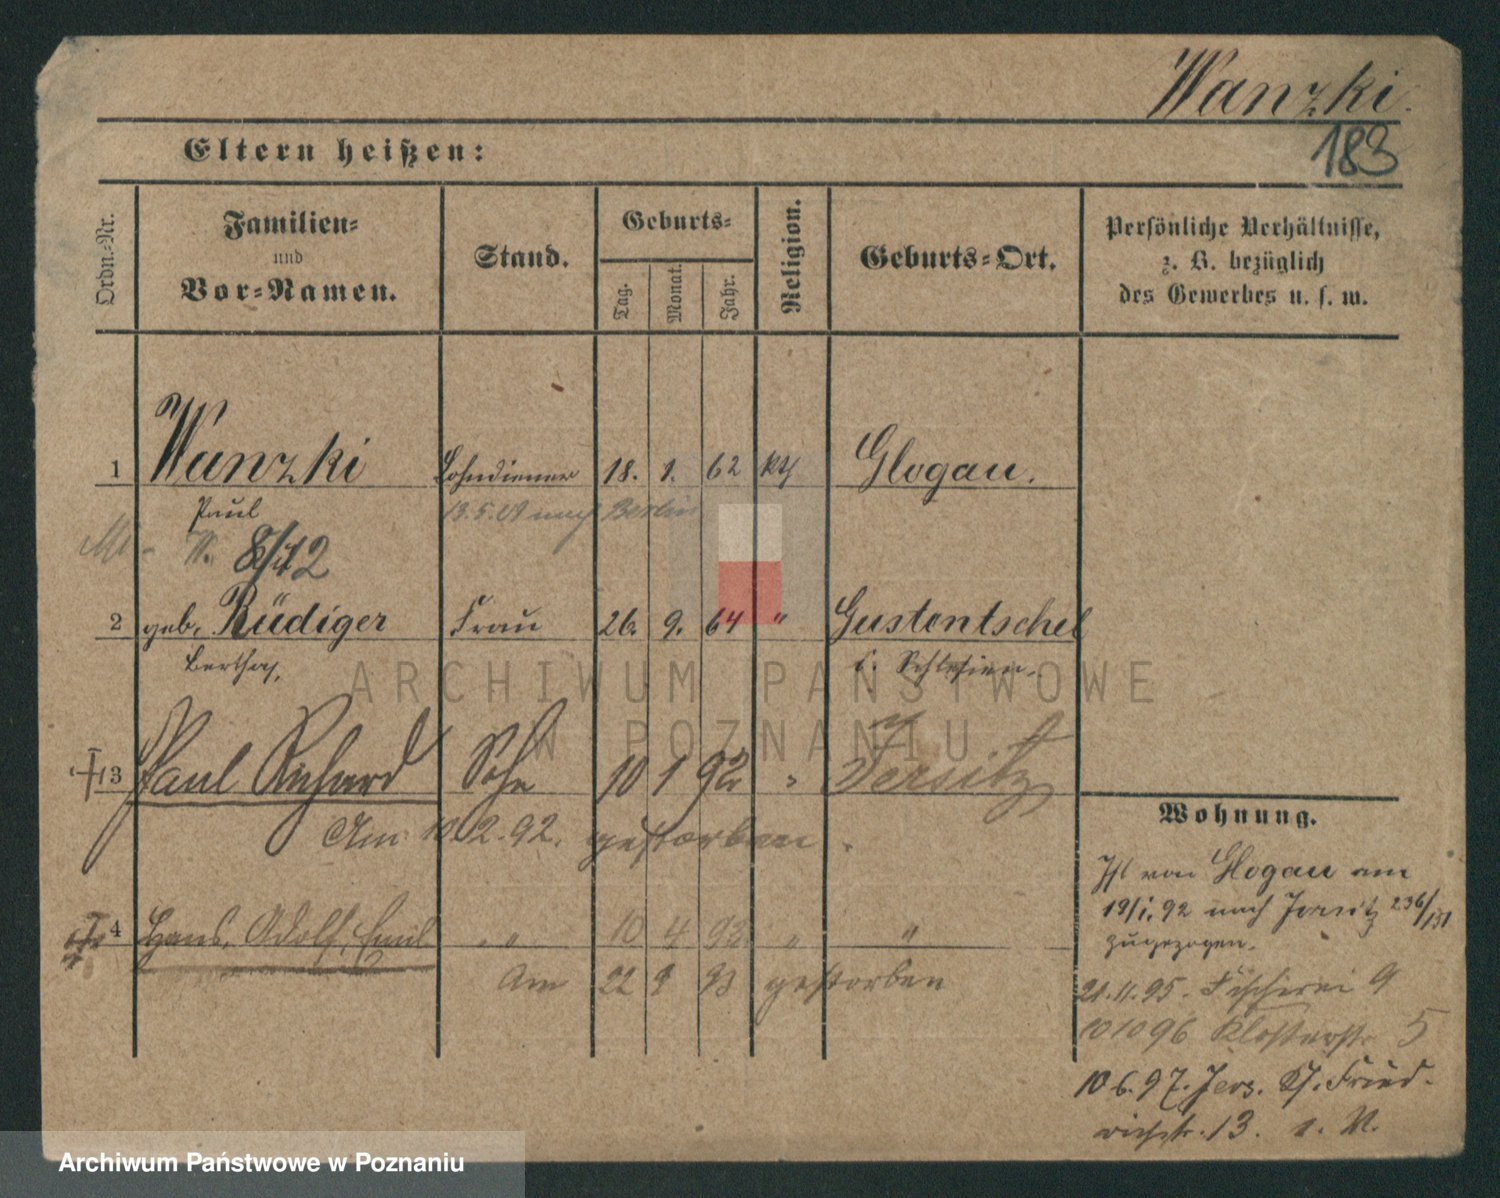 Wanzki.
183
Eltern heißen:
Ordn.-Nr.
Familien-
und
Vor-Namen.
Stand.
Geburts-
Tag.
Monat.
Jahr.
Religion.
Geburts-Ort.
Persönliche Verhältnisse,
z. B. bezüglich
des Gewerbes u. s. w.
1 Wanzki Lohndiener 18. 1. 62 kth Glogau.
Paul 13.5.09 nach Berlin
8/12
2 geb. Rüdiger Frau 26. 9. 64 " Gustentschel
Bertha, i. Schlesien.
3 Paul Richard Sohn 10 1 92 " Jersitz
Am 10.2.92. gestorben.
4 Hans, Adolf, Emil " 10 4 93 " "
Am 22 9 93 gestorben
Wohnung.
Ist von Glogau am
19/1. 92 nach Jersitz 236/131
zugezogen.
21.11.95. Fischerei 9
10 10 96 Klosterstr 5
10.6.97. Jers. Kf. Fried-
richstr. 13.
ARCHIWUM PAŃSTWOWE
W POZNANIU
Archiwum Państwowe w Poznaniu